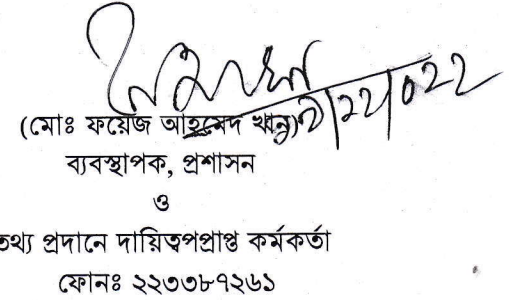 (মোঃ ফয়েজ আহমেদ খান)
ব্যবস্থাপক, প্রশাসন
ও
তথ্য প্রদানে দায়িত্বপপ্রাপ্ত কর্মকর্তা
ফোনঃ ২২৩৩৮৭২৬১